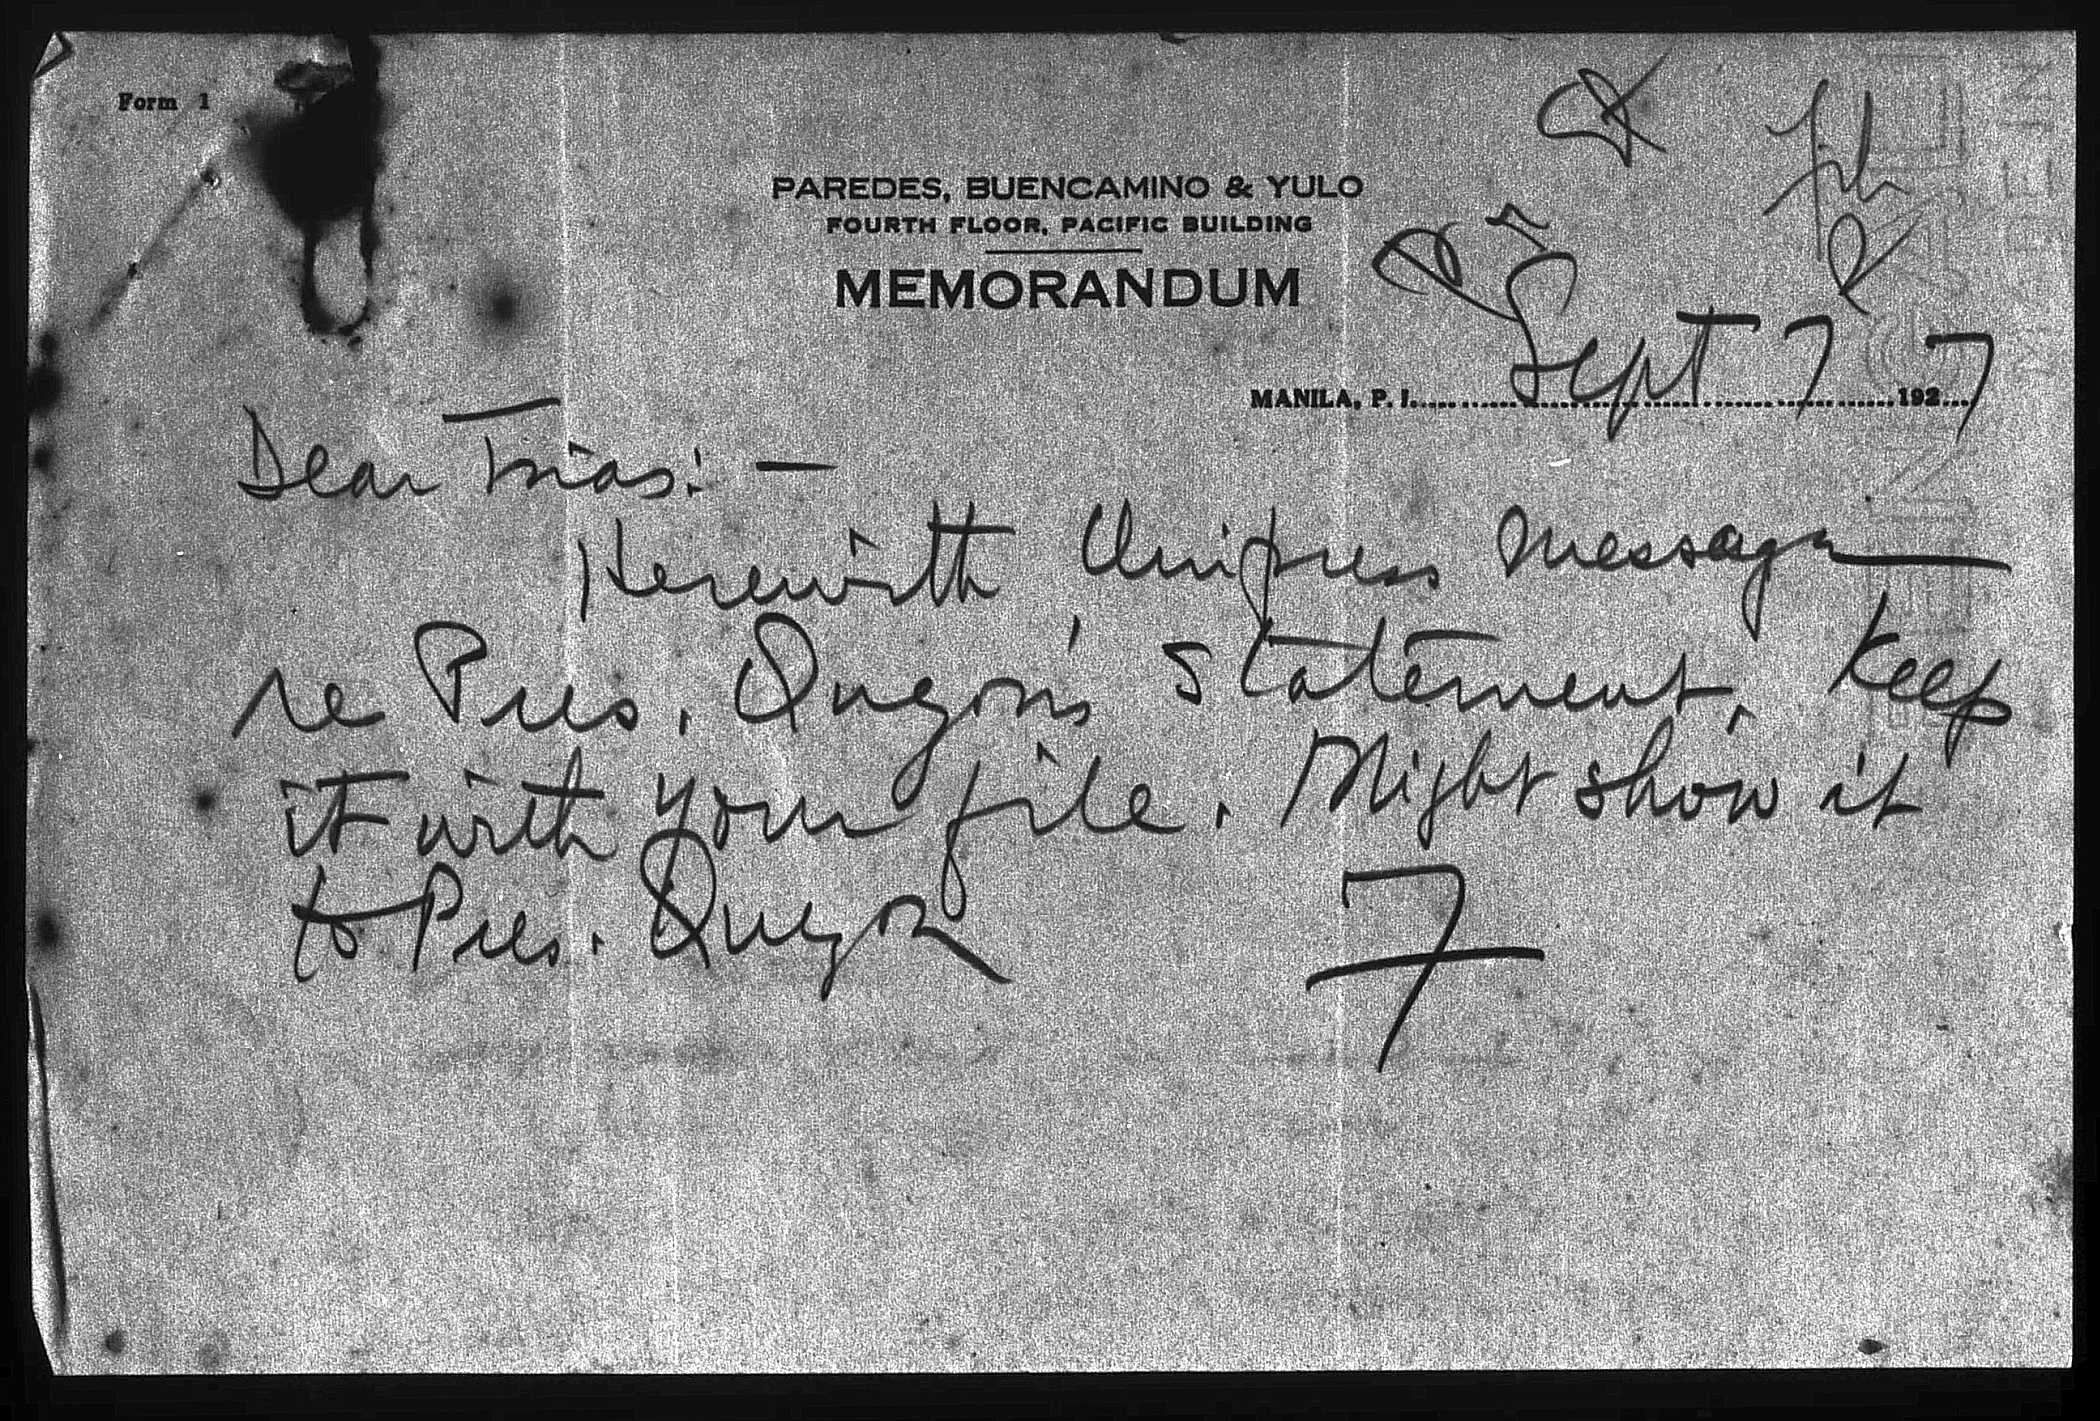 Form 1
PAREDES, BUENCAMINO & YULO
FOURTH FLOOR, PACIFIC BUILDING
MEMORANDUM
MANILA, P. I. Sept 7 1927
Dear Trias: —
Herewith Unipress message
re Pres. Quezon's statement. Keep
it with your file. Might show it
to Pres. Quezon
F